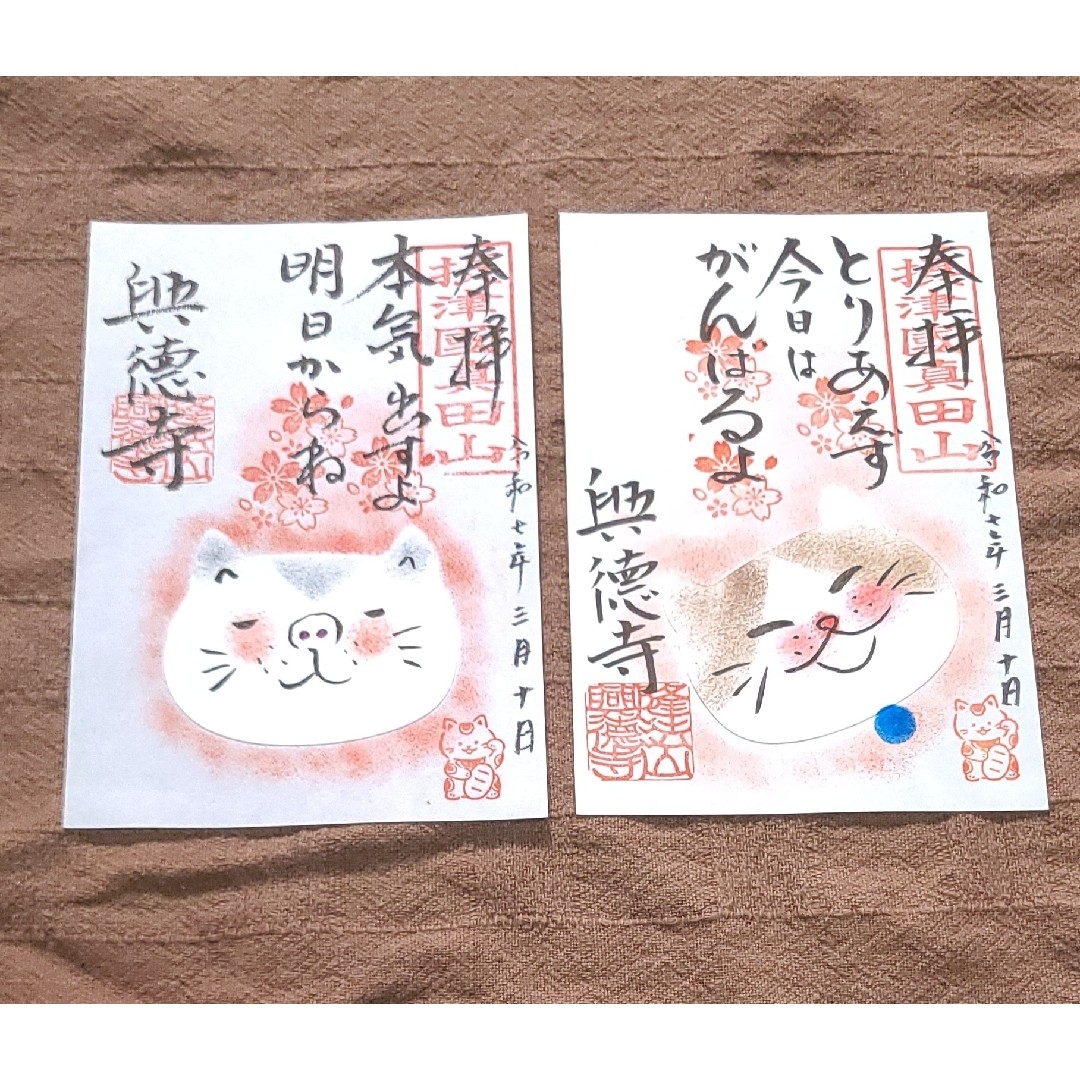 奉拝
摂津國真田山
令和七年三月十日
本気出すよ
明日からね
興徳寺
奉拝
摂津國真田山
令和七年三月十日
とりあえず
今日は
がんばるよ
興徳寺